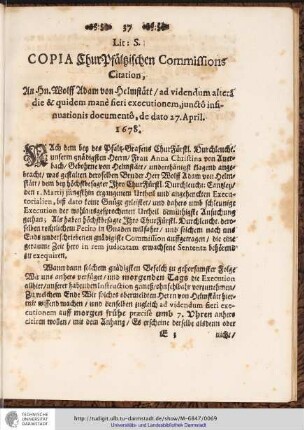 37
Lit: S.
COPIA ChurPfältzischen Commissions
Citation,
An Hn. Wolff Adam von Helmstätt / ad videndum alterâ
die & quidem manè fieri executionem, junctô insi-
nuationis documentô, de dato 27. April.
1678.
NAch dem bey des Pfaltz-Grafens ChurFürstl. Durchleucht.
unserm gnädigsten Herrn / Frau Anna Christina von Auer-
bach / Gebohrne von Helmstätt / underthänigst klagend ange-
bracht / was gestalten deroselben Bruder Wolf Adam von Helm-
stätt / dem bey höchstbesagter Ihro ChurFürstl. Durchleucht. Cantzley /
den 1. Martij jüngsthin ergangenen Urtheil und angehenckten Execu-
torialien, biß dato keine Gnüge geleistet / und dahero umb schleunige
Execution der wohlausgesprochenen Urtheil demüthigste Ansuchung
gethan; Als haben höchstbesagte Ihro ChurFürstl. Durchleucht. dero-
selben rechtlichem Petito in Gnaden willfahrt / und solchem nach uns
Ends underschriebenen gnädigste Commission auffgetragen / die eine
geraume Zeit hero in rem judicatam erwachsene Sentenz böhrend
zu exequiren.
Wann dann solchem gnädigsten Befelch zu gehorsamster Folge
Wir uns anhero verfüget / und morgenden Tags die Execution
allhier / unserer habenden Instruction gemäß / ohnfehlbar vorzunehmen /
Zu welchem Ende Wir solches obermeldtem Herrn von Helmstätt hier-
mit wissend machen / und denselben zugleich ad videndum fieri exe-
cutionem auff morgen frühe præcisè umb 7. Uhren anhero
citiren wollen / mit dem Anhang / Es erscheine derselbe alsdann oder
E 3
nicht /
TECHNISCHE
UNIVERSITÄT
DARMSTADT
http://tudigit.ulb.tu-darmstadt.de/show/M-6847/0069
Universitäts- und Landesbibliothek Darmstadt